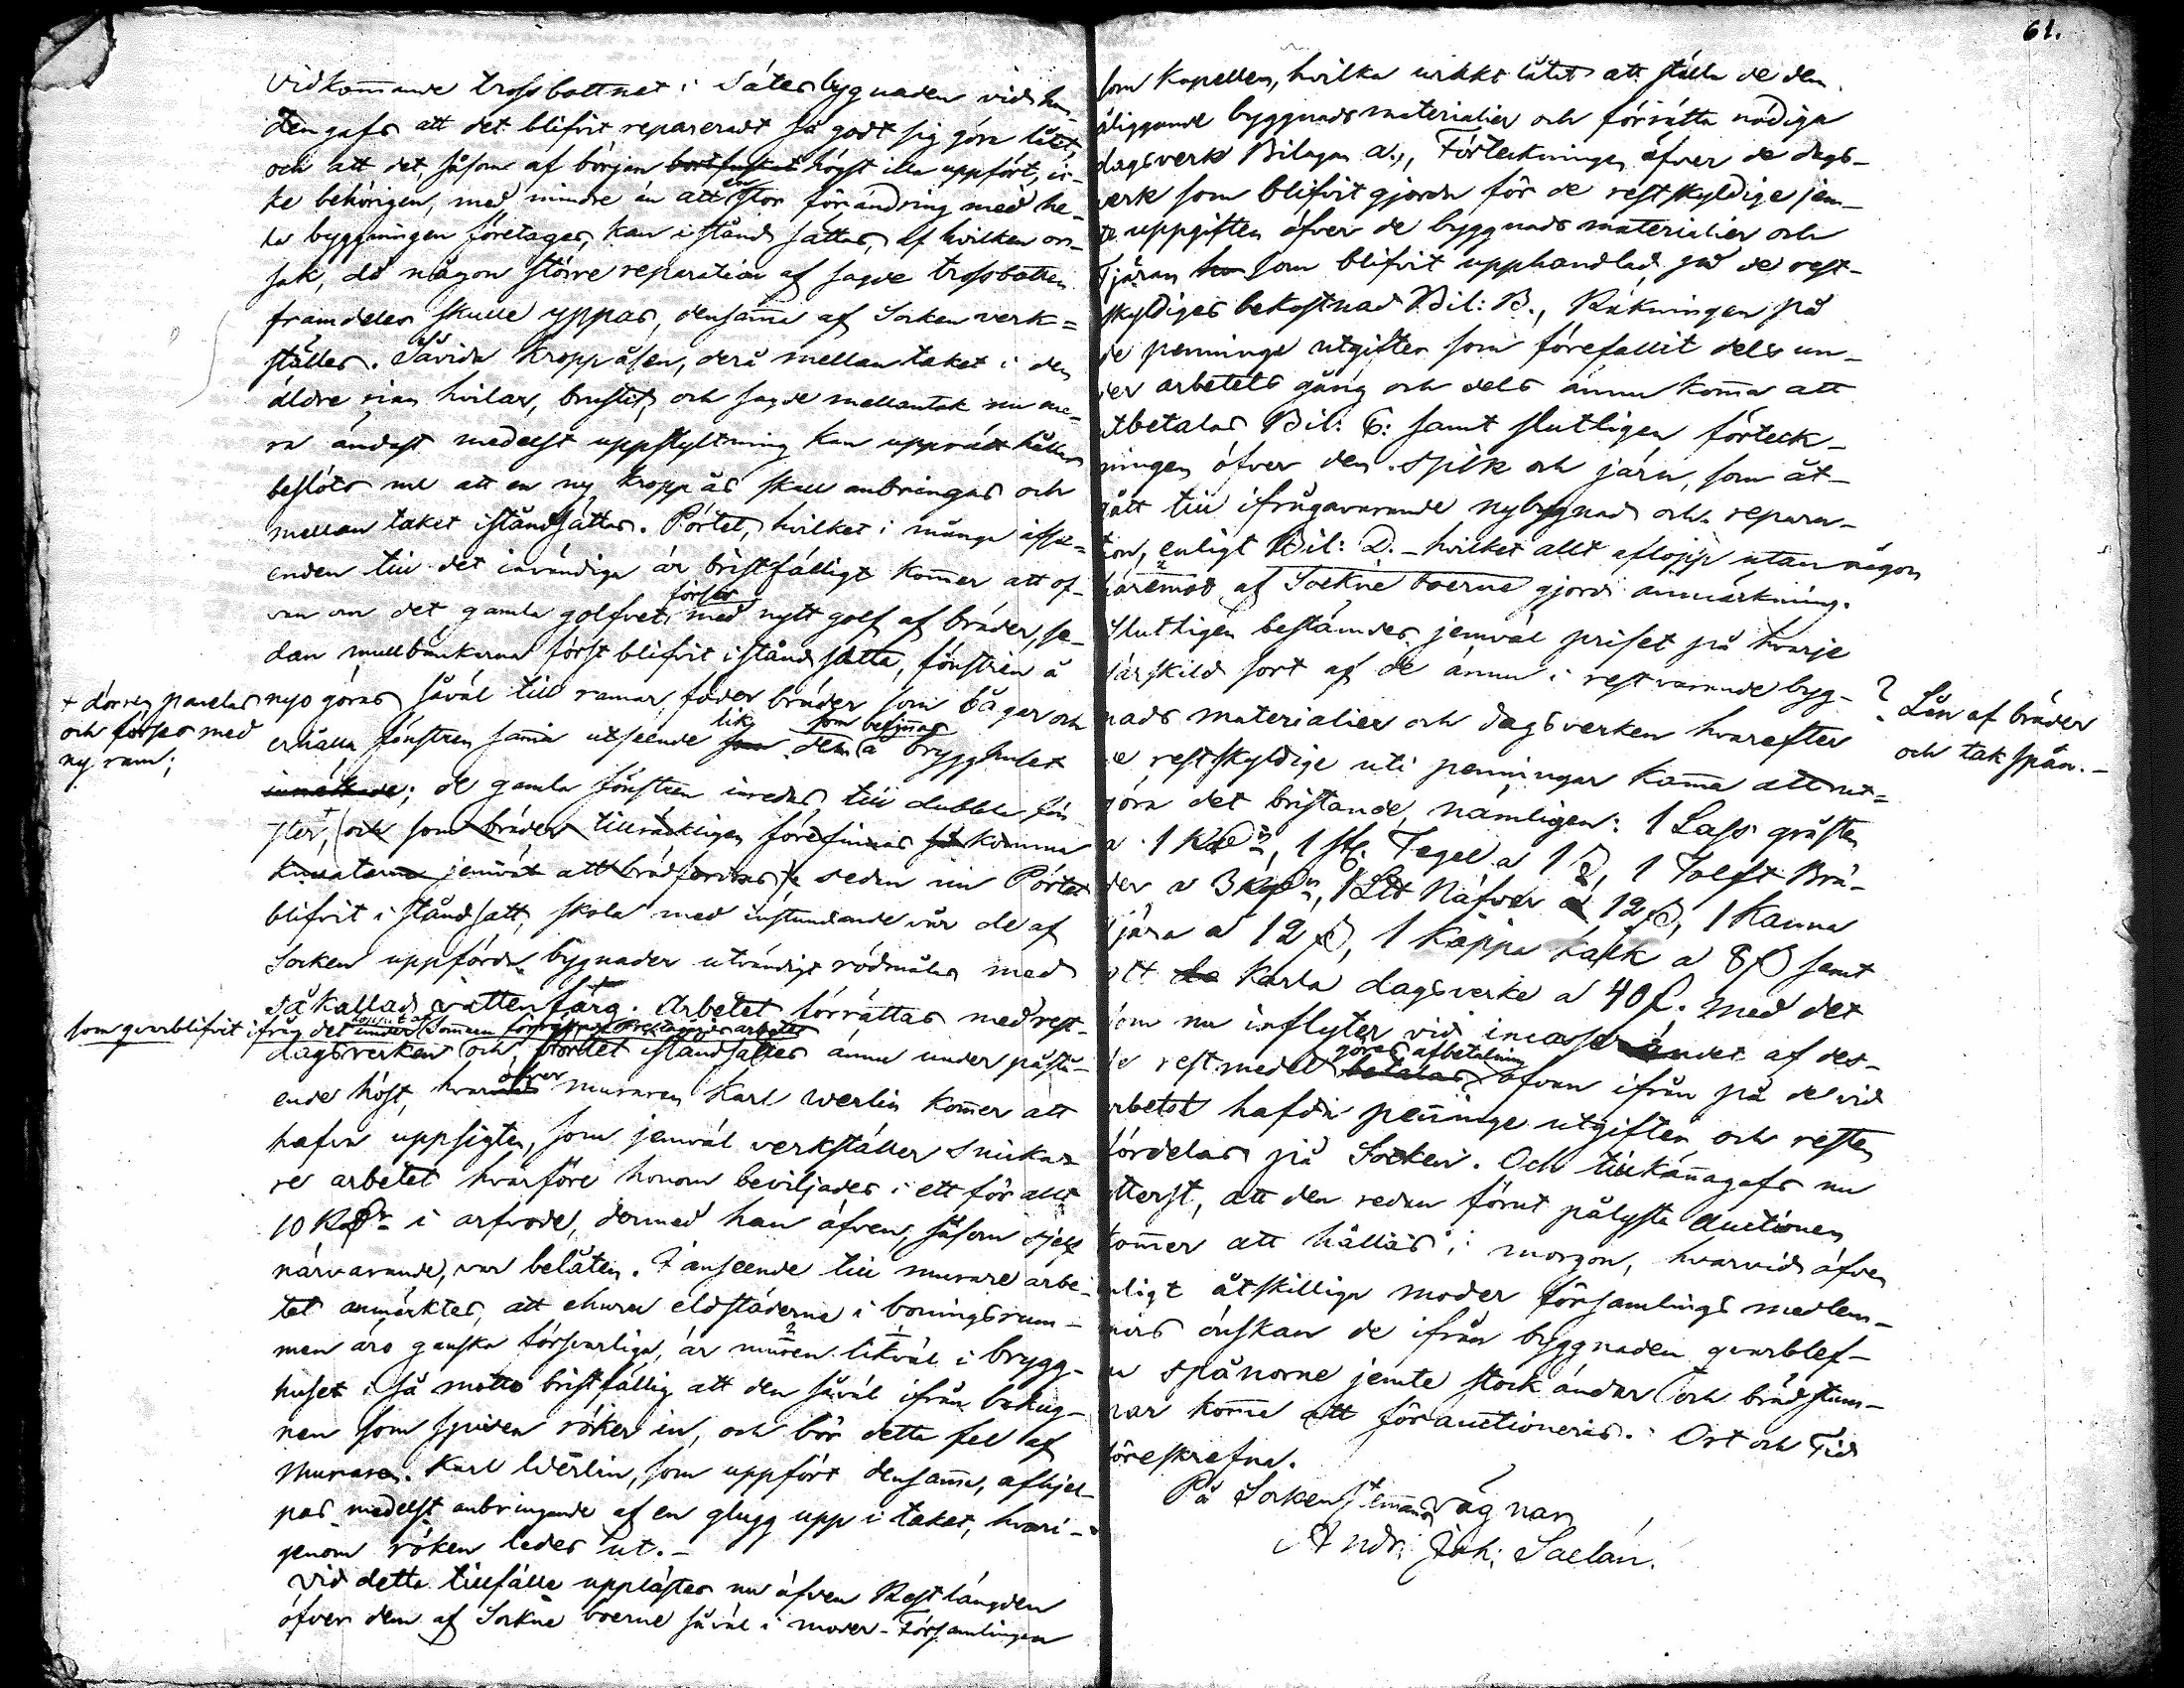 Vidkommande trossbottnet i Sätesbygnaden vid han-
den gafs att det blifvit reparerat så godt sig göra låtit,
och att det, såsom af början bortfuskat högst illa uppfört, ic-
ke behörigen, med mindre än att en stor förändring med he-
la byggningen företages, kan i stånd sättas, af hvilken or-
sak, då någon större reparation af sagde trossbotten
framdeles skulle yppas, densamma af Socken verk-
ställes. Såvida kroppåsen, derå mellantaket i den
äldre rian hvilar, brustit, och sagde mellantak nu me-
ra endast medelst uppstyltning kan upprätt hållas
beslöts nu att en ny kroppås skall anbringas och
mellan taket iståndsättas. Pörtet, hvilket i många afse-
enden till det invändiga är bristfälligt kommer att of-
van om det gamla golfvet förses med nytt golf af bräder, se-
dan mullbänkarna först blifvit i stånd satta, fönstren å
nyo göras såväl till ramar, foder bräder som bågar och
+ dörren panelas
och förses med
ny ram;
erhålla fönstren samma utseende som lik dem som befinnas å brygghuset
; de gamla fönstren inredas till dubbla fön
ster, och som bräder tillräckligen förefinnas så komma
knutarne jemväl att brädfordras, sedan nu Pörtet
blifvit i ståndsatt, skola med instundande vår de af
Socken uppförda bygnader utvändigt rödmålas med
så kallad vattenfärg. Arbetet förrättas med rest-
som qvarblifvit ifråg det under loppet af Sommaren
dagsverken och Pörtet iståndsättes ännu under påstå-
ende höst, hvaröfver muraren Karl Werlin kommer att
hafva uppsigten, som jemväl verkställer snicka-
re arbetet hvarföre honom beviljades i ett för allt
10 Rub. i arfvode, dermed han äfven, såsom sjelf
närvarande, var belåten. I anseende till murare arbe-
tet anmärktes, att ehuru eldstäderna i boningsrum-
men äro ganska försvarliga, är muren likväl i brygg-
huset i så motto bristfällig att den såväl ifrån bakug-
nen som spisen röker in, och bör detta fel af
Muraren Karl Werlin, som uppfört densamma, afhjel-
pas medelst anbringande af en glugg upp i taket, hvari-
genom röken ledes ut.-
Vid detta tillfälle upplästes nu äfven Restlängden
öfver dem af Sockne boerne såväl i moder-Församlingen
61.
som Kapellen, hvilka urakt låtit att ställa de dem
åliggande byggnadsmaterialier och förrätta nödiga
dagsverk Bilagan A., Förteckningen öfver de dags-
verk som blifvit gjorda för de restskyldige jem-
te uppgiften öfver de byggnads materialier och
Tjäran som blifvit upphandlad på de rest-
skyldiges bekostnad Bil: B., Räkningen på
de penninge utgifter som förefallit dels un-
der arbetets gång och dels ännu komma att
utbetalas Bil: C: samt slutligen förteck-
ningen öfver den spik och järn, som åt-
gått till ifrågavarande nybygnad och repara-
tion, enligt Bil: D. - hvilket allt aflopp utan någon
häremot af Sockne boerne gjord anmärkning.
Slutligen bestämdes jemväl priset på hvarje
särskild sort af de ännu i rest varande byg-
nads materialier och dagsverken hvarefter
? Lån af bräder
och tak spån.-
de restskyldige uti penningar komma att ut-
göra det bristande, nämligen: 1 Lass gråsten
a 1 Rub., 1 st. Tegel a 1, 1 Tolft Brä-
der a 3, 1 Näfver a 12, 1 Kanna
Tjära a 12, 1 Kappa kalk a 8 samt
ett Karla dagsverke a 40. Med det
som nu inflyter vid incasserandet af des-
se restmedel göres afbetalning ofvan ifrån på de vid
arbetet hafda penninge utgifter och resten
fördelas på Socken. Och tillkännagafs nu
ytterst, att den redan förut pålysta Auctionen
kommer att hållas i morgon, hvarvid äfven
enligt åtskillige moder församlings medlem-
mars önskan de ifrån byggnaden qvarblef-
na spånorne jemte stock ändar och brädstum-
par komma att förauctioneras. Ort och Tid
föreskrefna.
På Sockenstemmans vägnar
Andr: Joh: Saelán.